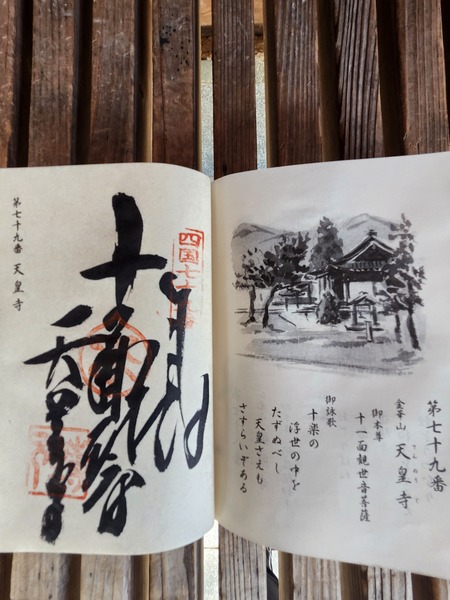 第七十九番
金華山 天皇寺
御本尊
十一面観世音菩薩
御詠歌
十楽の
浮世の中を
たずぬべし
天皇さえも
さすらいぞある
四国七十
天皇寺
第七十九番 天皇寺